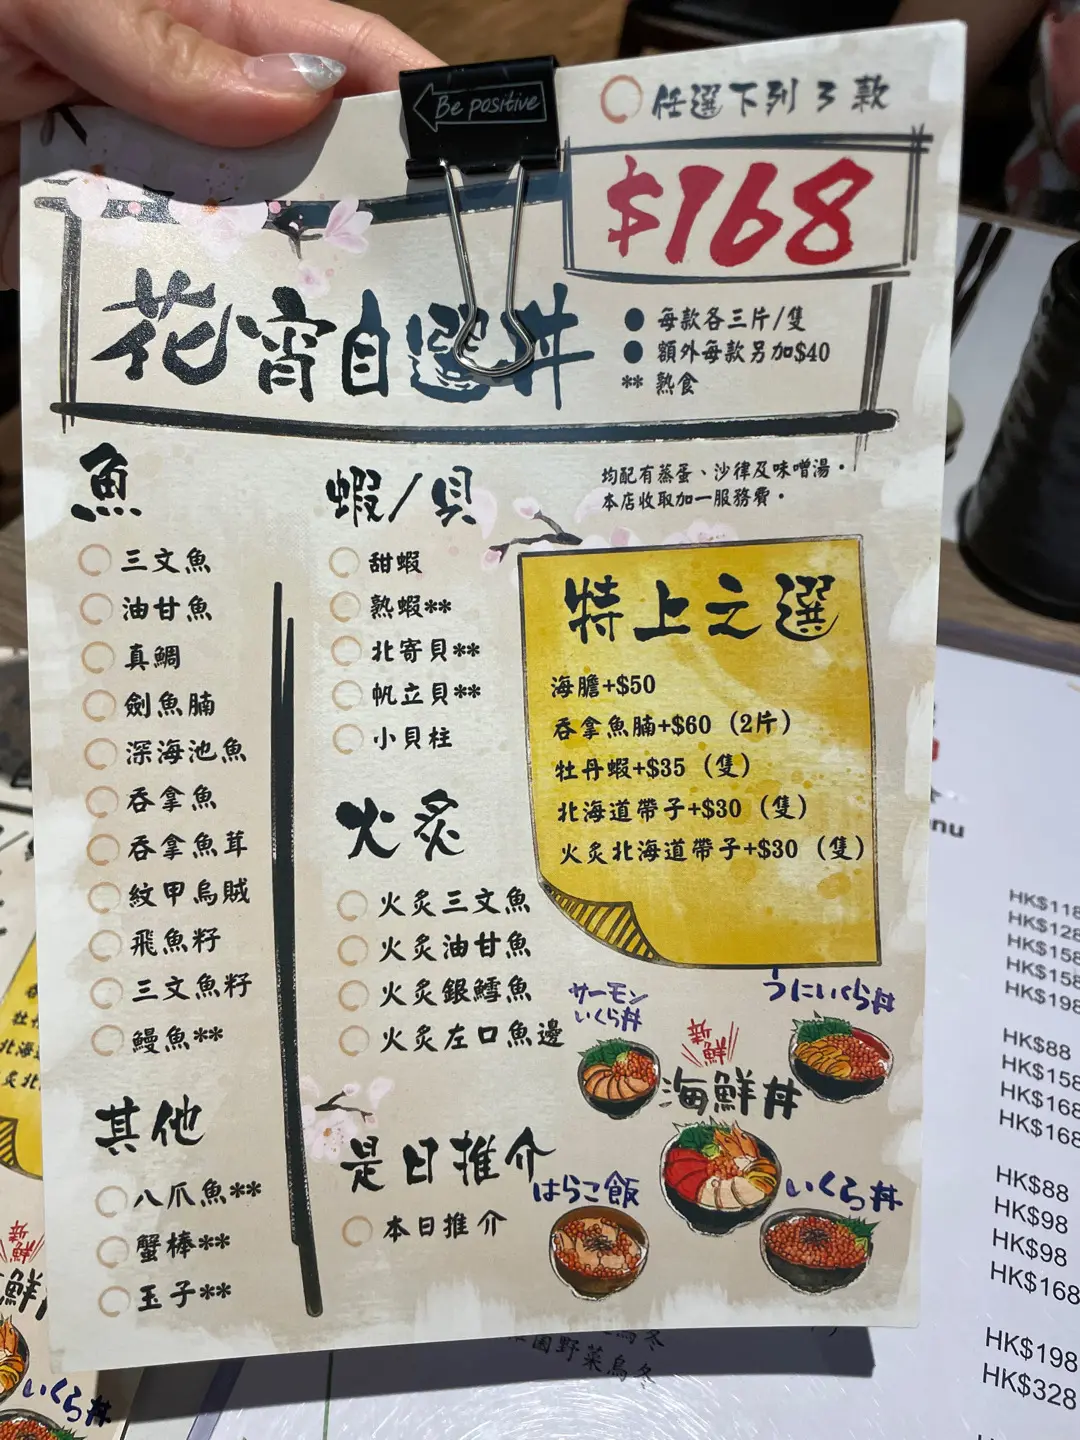 Be positive
任選下列3款
$168
花宵自選丼
每款各三片/隻
額外每款另加$40
** 熟食
均配有蒸蛋、沙律及味噌湯。
本店收取加一服務費。
魚
三文魚
油甘魚
真鯛
劍魚腩
深海池魚
吞拿魚
吞拿魚茸
紋甲烏賊
飛魚籽
三文魚籽
鰻魚**
其他
八爪魚**
蟹棒**
玉子**
蝦/貝
甜蝦
熟蝦**
北寄貝**
帆立貝**
小貝柱
火炙
火炙三文魚
火炙油甘魚
火炙銀鱈魚
火炙左口魚邊
是日推介
本日推介
特上之選
海膽+$50
吞拿魚腩+$60 (2片)
牡丹蝦+$35 (隻)
北海道帶子+$30 (隻)
火炙北海道帶子+$30 (隻)
サーモン
いくら丼
うにいくら丼
新鮮
海鮮丼
はらこ飯
いくら丼
nu
HK$118
HK$128
HK$158
HK$158
HK$198
HK$88
HK$158
HK$168
HK$168
HK$88
HK$98
HK$98
HK$168
HK$198
HK$328
野菜烏冬
いくら丼